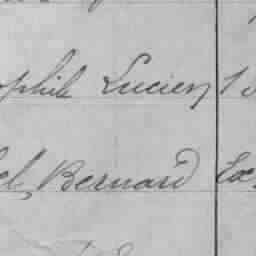 ophile Lucien 1
el Bernard Ex